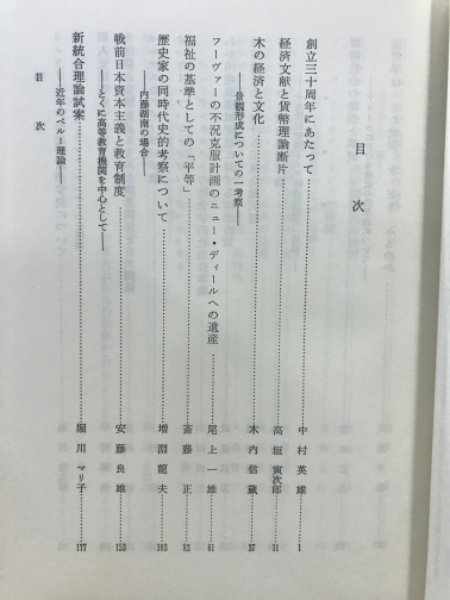 目次
創立三十周年にあたって……中村英雄 1
経済文献と貨幣理論断片……高垣寅次郎 11
木の経済と文化……木内信蔵 37
――景観形成についての一考察――
フーヴァーの不況克服計画のニュー・ディールへの遺産……尾上一雄 61
福祉の基準としての「平等」……斎藤正 83
歴史家の同時代史的考察について……増淵龍夫 103
――内藤湖南の場合――
戦前日本資本主義と教育制度……安藤良雄 153
――とくに高等教育機関を中心として――
新統合理論試案……堀川マリ子 177
――近年のペルー理論――
目次